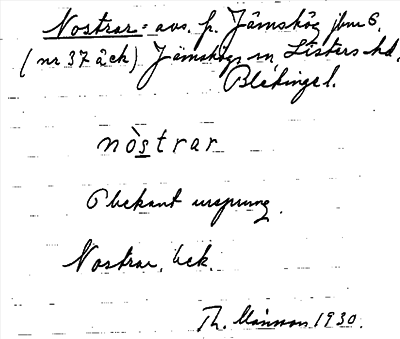 Nostrar = avs. på Jämshög jbnr 6.
(nr 37 äck) Jämshögs sn, Listers hd,
Blekinge l.
nòstrar
Obekant ursprung.
Nostrar, bek.
Th. Månsson 1930.